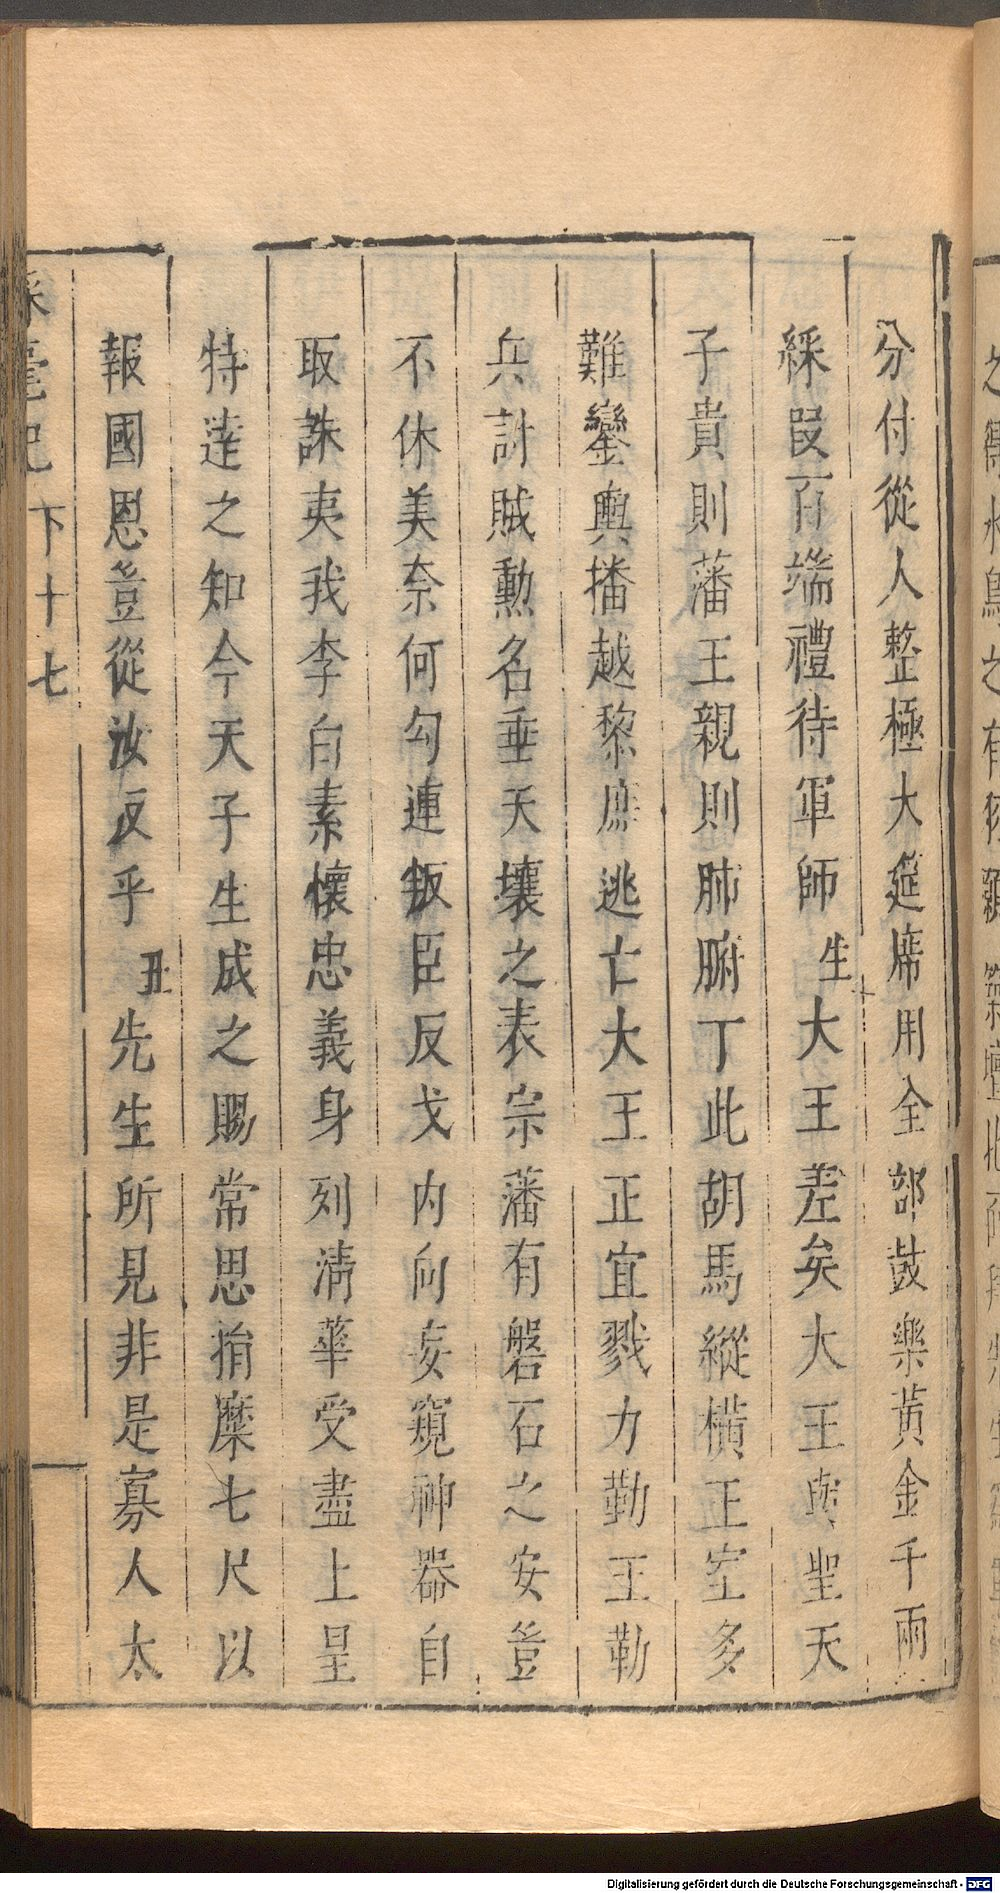 分付從人整極大筵席用全部鼓樂黃金千兩
綵段百端禮待軍師生大王差矣大王與聖天
子貴則藩王親則肺腑丁此胡馬縱橫正室多
難鑾輿播越黎庶逃亡大王正宜戮力勤王勒
兵討賊勳名垂天壤之表宗藩有磐石之安豈
不休美奈何勾連叛臣反戈内向妄窺神器自
取誅夷我李白素懷忠義身列清華受盡上皇
特達之知今天子生成之賜常思捐糜七尺以
報國恩豈從汝反乎丑先生所見非是寡人太
彩毫記 下十七
Digitalisierung gefördert durch die Deutsche Forschungsgemeinschaft - DFG